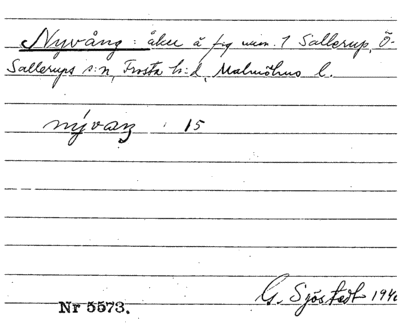 Nyvång: åker å fig num. 1 Sallerup, Ö-
Sallerups s:n, Frosta h:d, Malmöhus l.
nývaŋ : 15
G. Sjöstedt 194
Nr 5573.